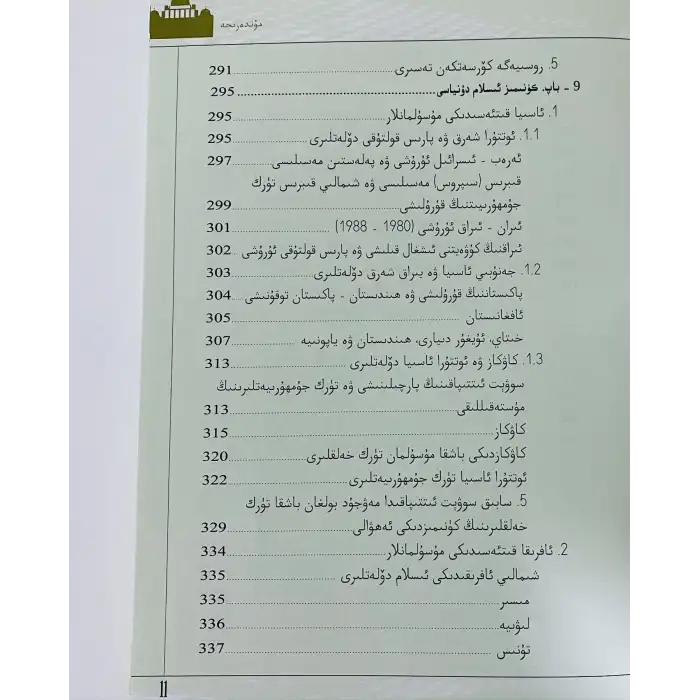 مۇندەرىجە
5. روسىيەگە كۆرسەتكەن تەسىرى 291
9 - باپ. كۈنىمىز ئىسلام دۇنياسى 295
1. ئاسىيا قىتئەسىدىكى مۇسۇلمانلار 295
1.1. ئوتتۇرا شەرق ۋە پارىس قولتۇقى دۆلەتلىرى 295
ئەرەب - ئىسرائىل ئۇرۇشى ۋە پەلەستىن مەسىلىسى 297
قىبرىس (سىپروس) مەسىلىسى ۋە شىمالىي قىبرىس تۈرك
جۇمھۇرىيىتىنىڭ قۇرۇلىشى 299
ئىران - ئىراق ئۇرۇشى (1980 - 1988) 301
ئىراقنىڭ كۇۋەيتنى ئىشغال قىلىشى ۋە پارىس قولتۇقى ئۇرۇشى 302
1.2. جەنۇبىي ئاسىيا ۋە يىراق شەرق دۆلەتلىرى 303
پاكىستاننىڭ قۇرۇلىشى ۋە ھىندىستان - پاكىستان توقۇنىشى 304
ئافغانىستان 305
خىتاي، ئۇيغۇر دىيارى، ھىندىستان ۋە ياپونىيە 307
1.3. كاۋكاز ۋە ئوتتۇرا ئاسىيا دۆلەتلىرى 313
سوۋېت ئىتتىپاقىنىڭ پارچىلىنىشى ۋە تۈرك جۇمھۇرىيەتلىرىنىڭ
مۇستەقىللىقى 313
كاۋكاز 315
كاۋكازدىكى باشقا مۇسۇلمان تۈرك خەلقلىرى 320
ئوتتۇرا ئاسىيا تۈرك جۇمھۇرىيەتلىرى 322
5. سابىق سوۋېت ئىتتىپاقىدا مەۋجۇد بولغان باشقا تۈرك
خەلقلىرىنىڭ كۈنىمىزدىكى ئەھۋالى 329
2. ئافرىقا قىتئەسىدىكى مۇسۇلمانلار 334
شىمالىي ئافرىقىدىكى ئىسلام دۆلەتلىرى 335
مىسىر 335
لىۋىيە 336
تۇنىس 337
11